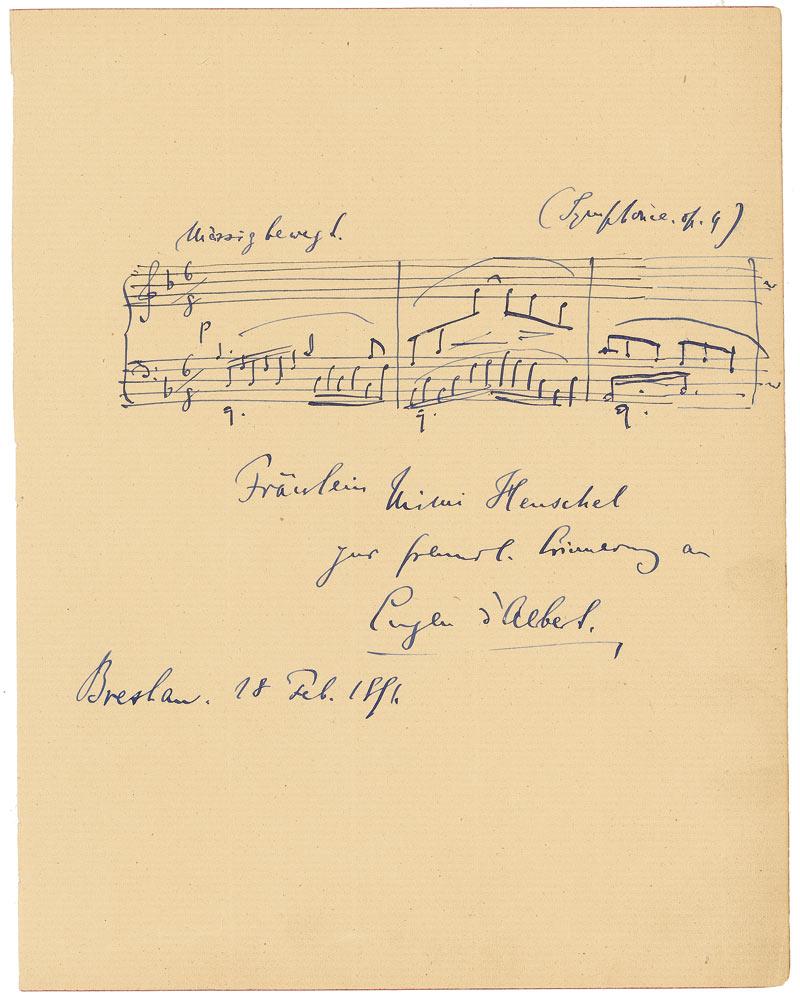 (Symphonie. op. 4)
Mässig bewegt.
6
8
p
6
8
Fräulein Mimi Henschel
zur freundl. Erinnerung an
Eugen d'Albert.
Breslau. 18 Feb. 1891.